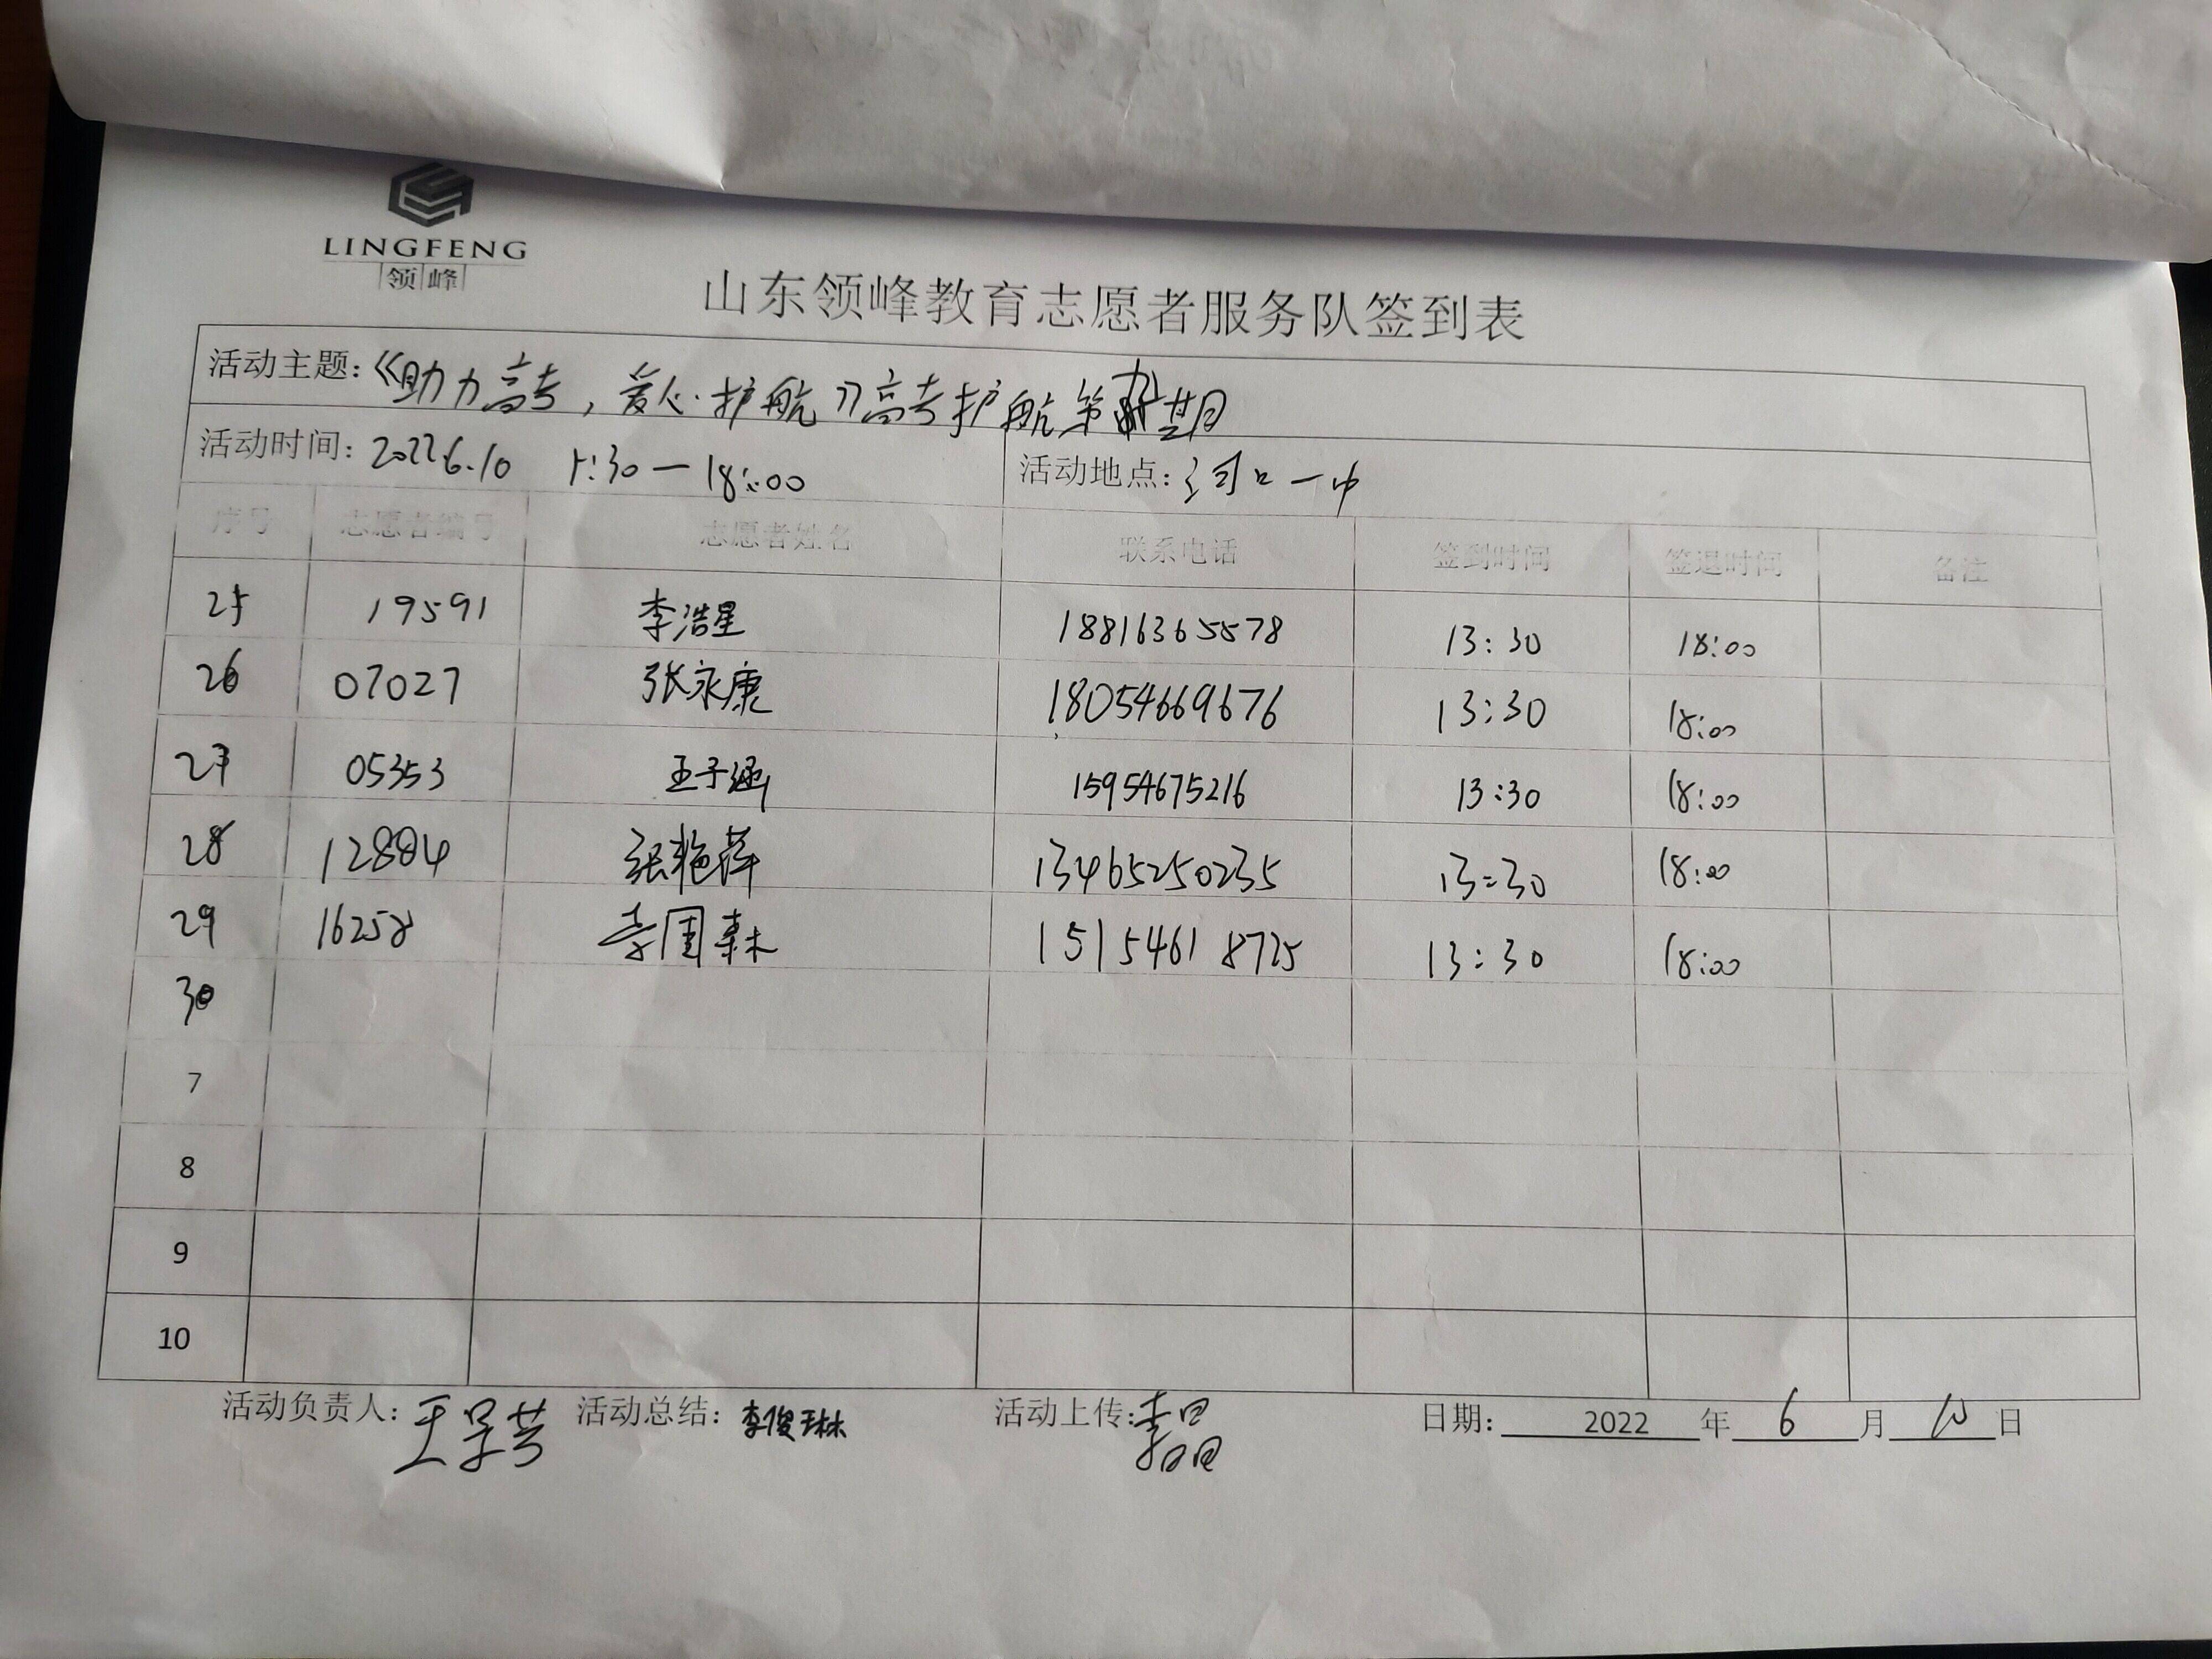 LINGFENG
领峰
山东领峰教育志愿者服务队签到表
活动主题：《助力高考，爱心护航》高考护航第 期
活动时间：2022.6.10 1:30—18:00 活动地点：河口一中
序号 志愿者编号 志愿者姓名 联系电话 签到时间 签退时间 备注
25 19591 李浩星 18816365578 13:30 18:00
26 07027 张永康 18054669676 13:30 18:00
27 05353 王子涵 15954675216 13:30 18:00
28 12884 张艳萍 13465250235 13:30 18:00
29 16258 李国森 15154618725 13:30 18:00
30
7
8
9
10
活动负责人： 活动总结：李俊琳 活动上传： 日期： 2022 年 6 月 10 日